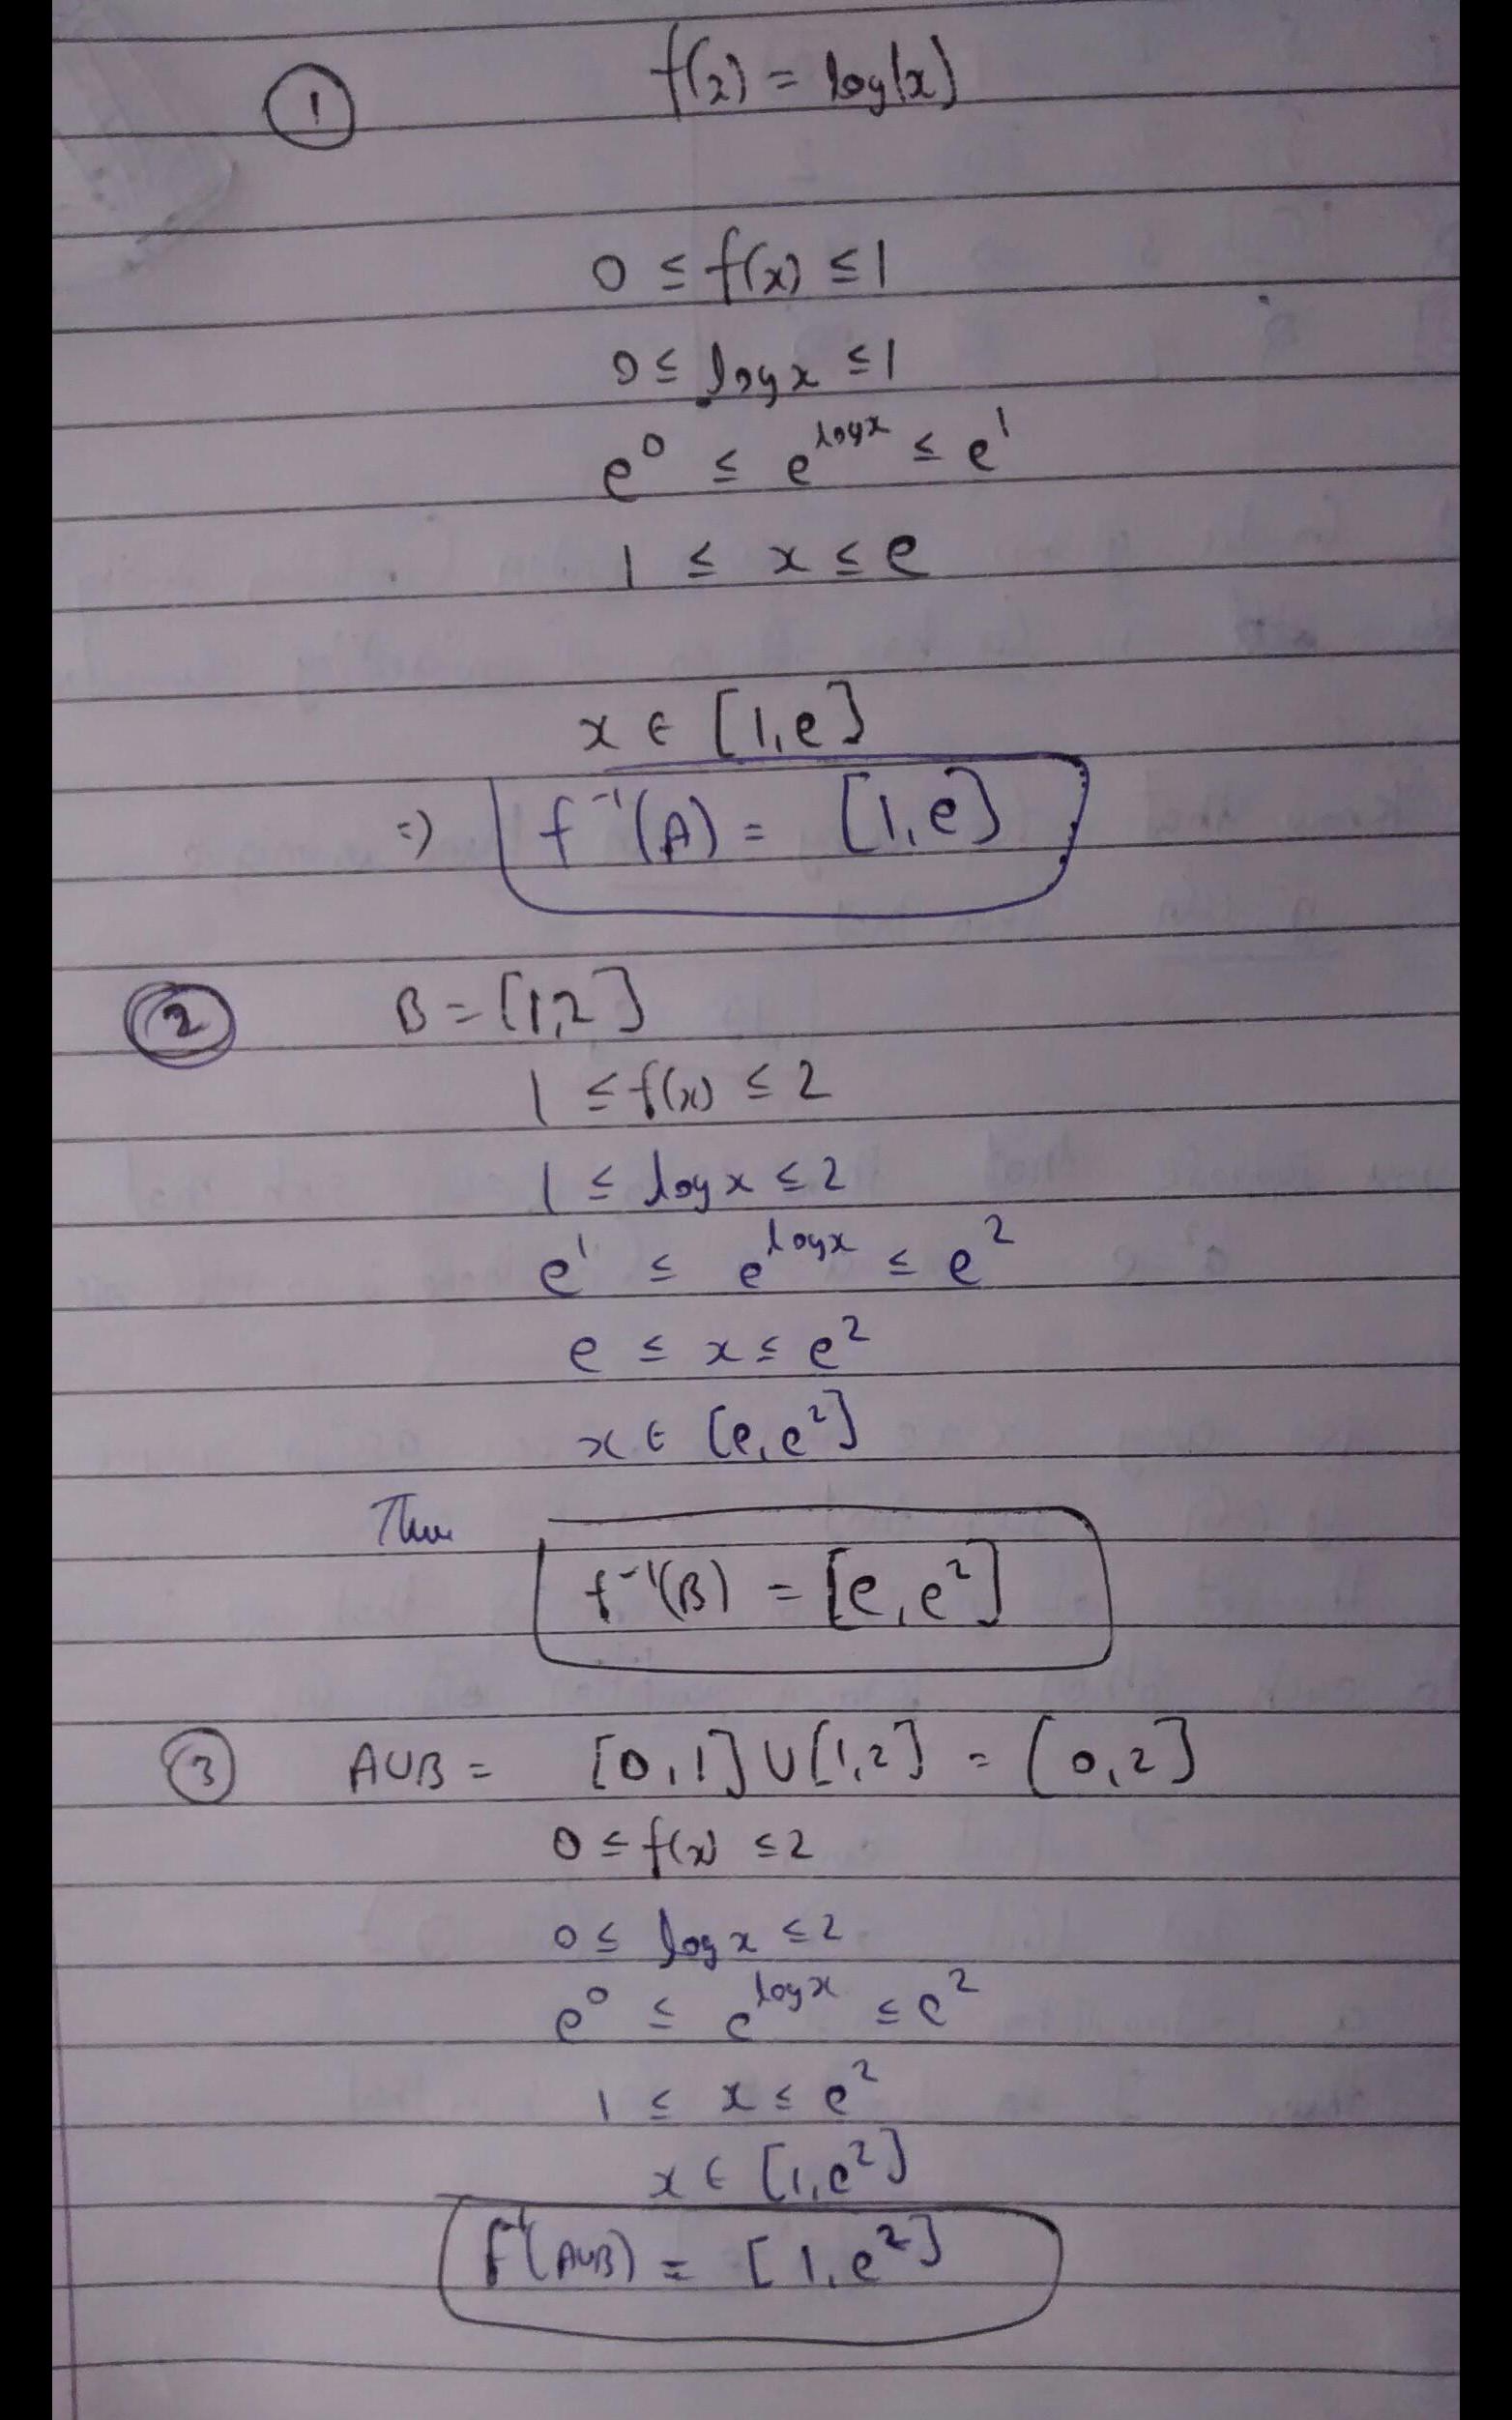 ①
f(x) = log(x)
0 ≤ f(x) ≤ 1
0 ≤ log x ≤ 1
e⁰ ≤ e^{log x} ≤ e¹
1 ≤ x ≤ e
x ∈ [1,e]
⇒) f⁻¹(A) = [1,e]
② B = [1,2]
1 ≤ f(x) ≤ 2
1 ≤ log x ≤ 2
e¹ ≤ e^{log x} ≤ e²
e ≤ x ≤ e²
x ∈ [e,e²]
f⁻¹(B) = [e,e²]
③ AUB = [0,1] U [1,2] = [0,2]
0 ≤ f(x) ≤ 2
0 ≤ log x ≤ 2
e⁰ ≤ e^{log x} ≤ e²
1 ≤ x ≤ e²
x ∈ [1,e²]
f⁻¹(AUB) = [1,e²]